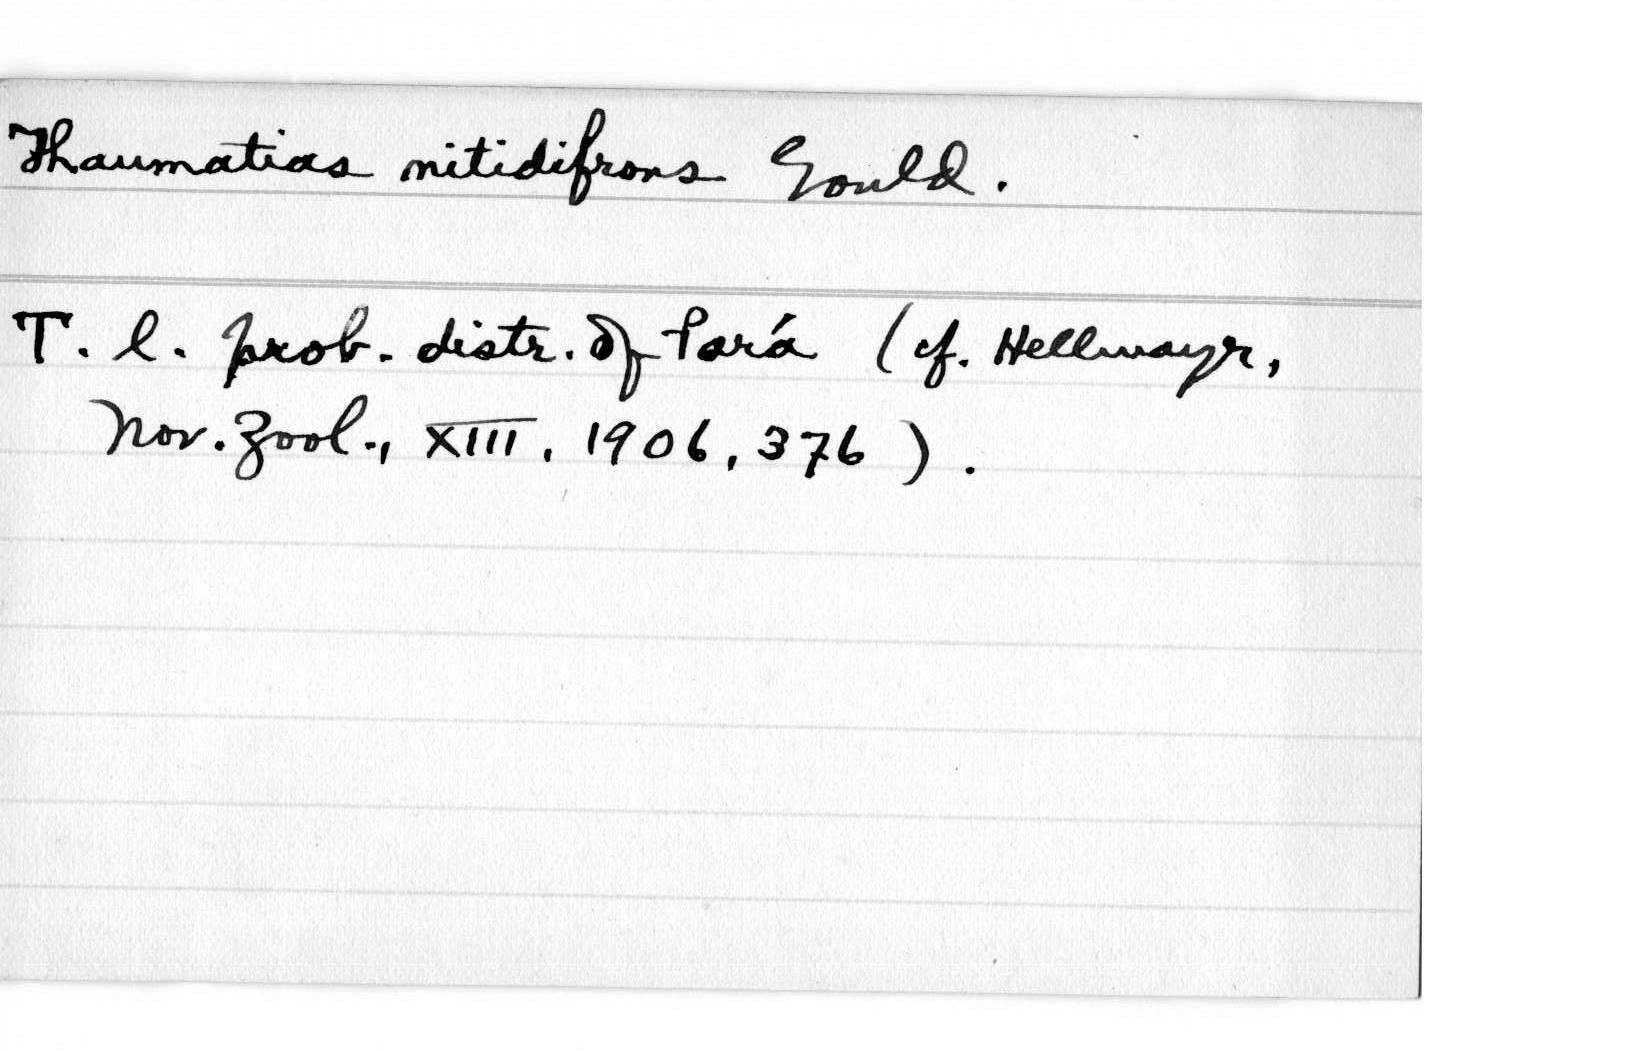 Thaumatias nitidifrons Gould.
T. l. prob. distr. of Pará (cf. Hellmayr,
Nov. Zool., XIII, 1906, 376).